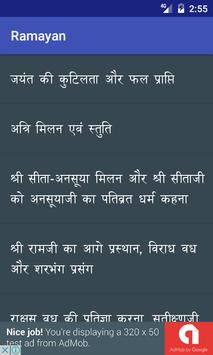 4G 2:55
Ramayan
जयंत की कुटिलता और फल प्राप्ति
अत्रि मिलन एवं स्तुति
श्री सीता-अनसूया मिलन और श्री सीताजी
को अनसूयाजी का पतिव्रत धर्म कहना
श्री रामजी का आगे प्रस्थान, विराध वध
और शरभंग प्रसंग
राक्षस वध की प्रतिज्ञा करना, सुतीक्ष्णजी
Nice job! You're displaying a 320 x 50
test ad from AdMob.
AdMob by Google